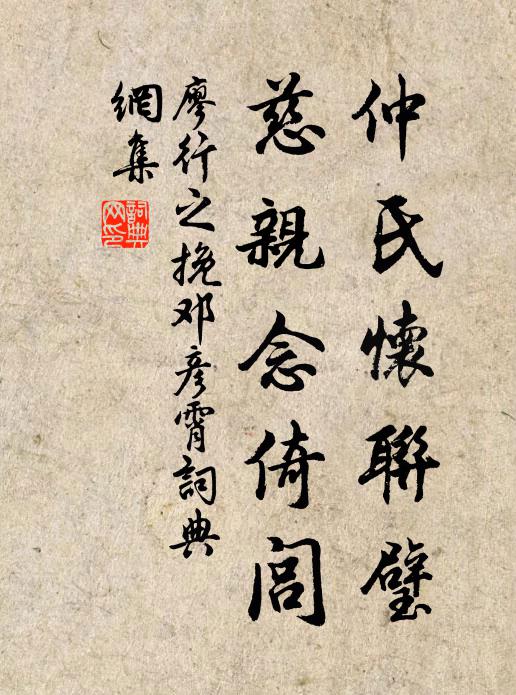 仲氏懷聯璧
慈親念倚閭
廖行之挽邓彥霄詞典
網集
詞典網印